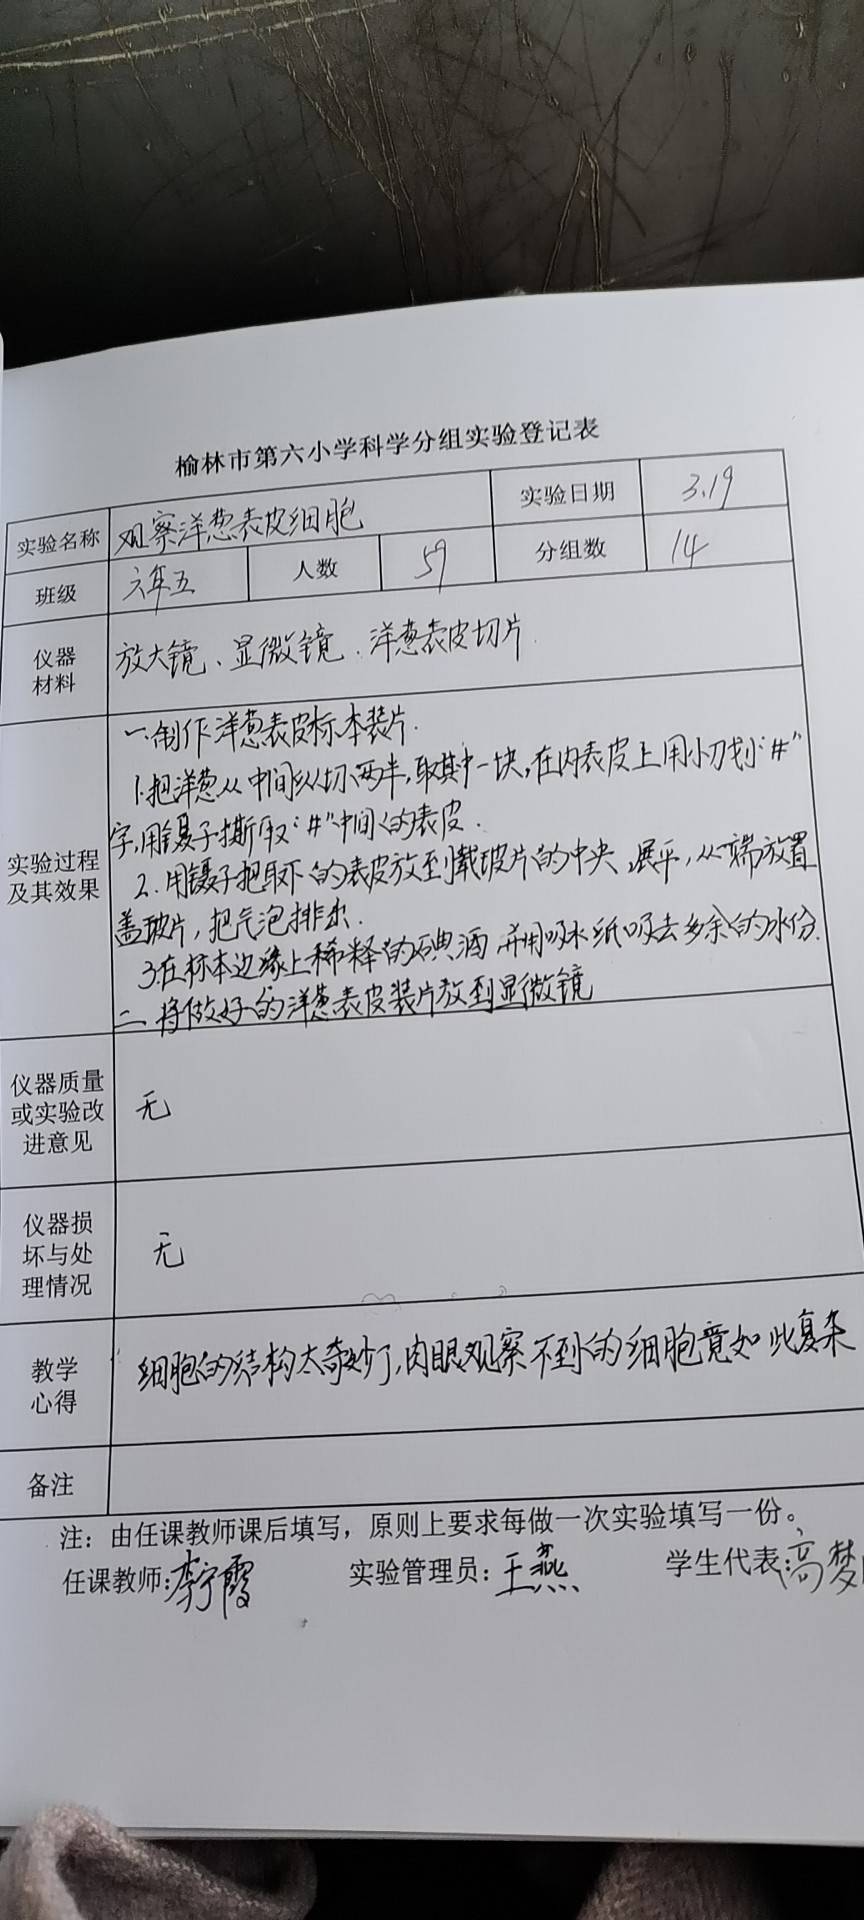 榆林市第六小学科学分组实验登记表
实验名称 观察洋葱表皮细胞 实验日期 3.19
班级 六年五 人数 59 分组数 14
仪器
材料
放大镜、显微镜、洋葱表皮切片
实验过程
及其效果
一.制作洋葱表皮标本装片.
1.把洋葱从中间纵切两半,取其中一块,在内表皮上用小刀划"#"
字,用镊子撕取"#"中间的表皮.
2.用镊子把取下的表皮放到载玻片的中央,展平,从一端放置
盖玻片,把气泡排出.
3.在标本边缘上稀释的碘酒,并用吸水纸吸去多余的水份.
二.将做好的洋葱表皮装片放到显微镜
仪器质量
或实验改
进意见
无
仪器损
坏与处
理情况
无
教学
心得
细胞的结构太奇妙了,肉眼观察不到的细胞竟如此复杂
备注
注：由任课教师课后填写，原则上要求每做一次实验填写一份。
任课教师:李宁霞 实验管理员：王燕 学生代表:高梦